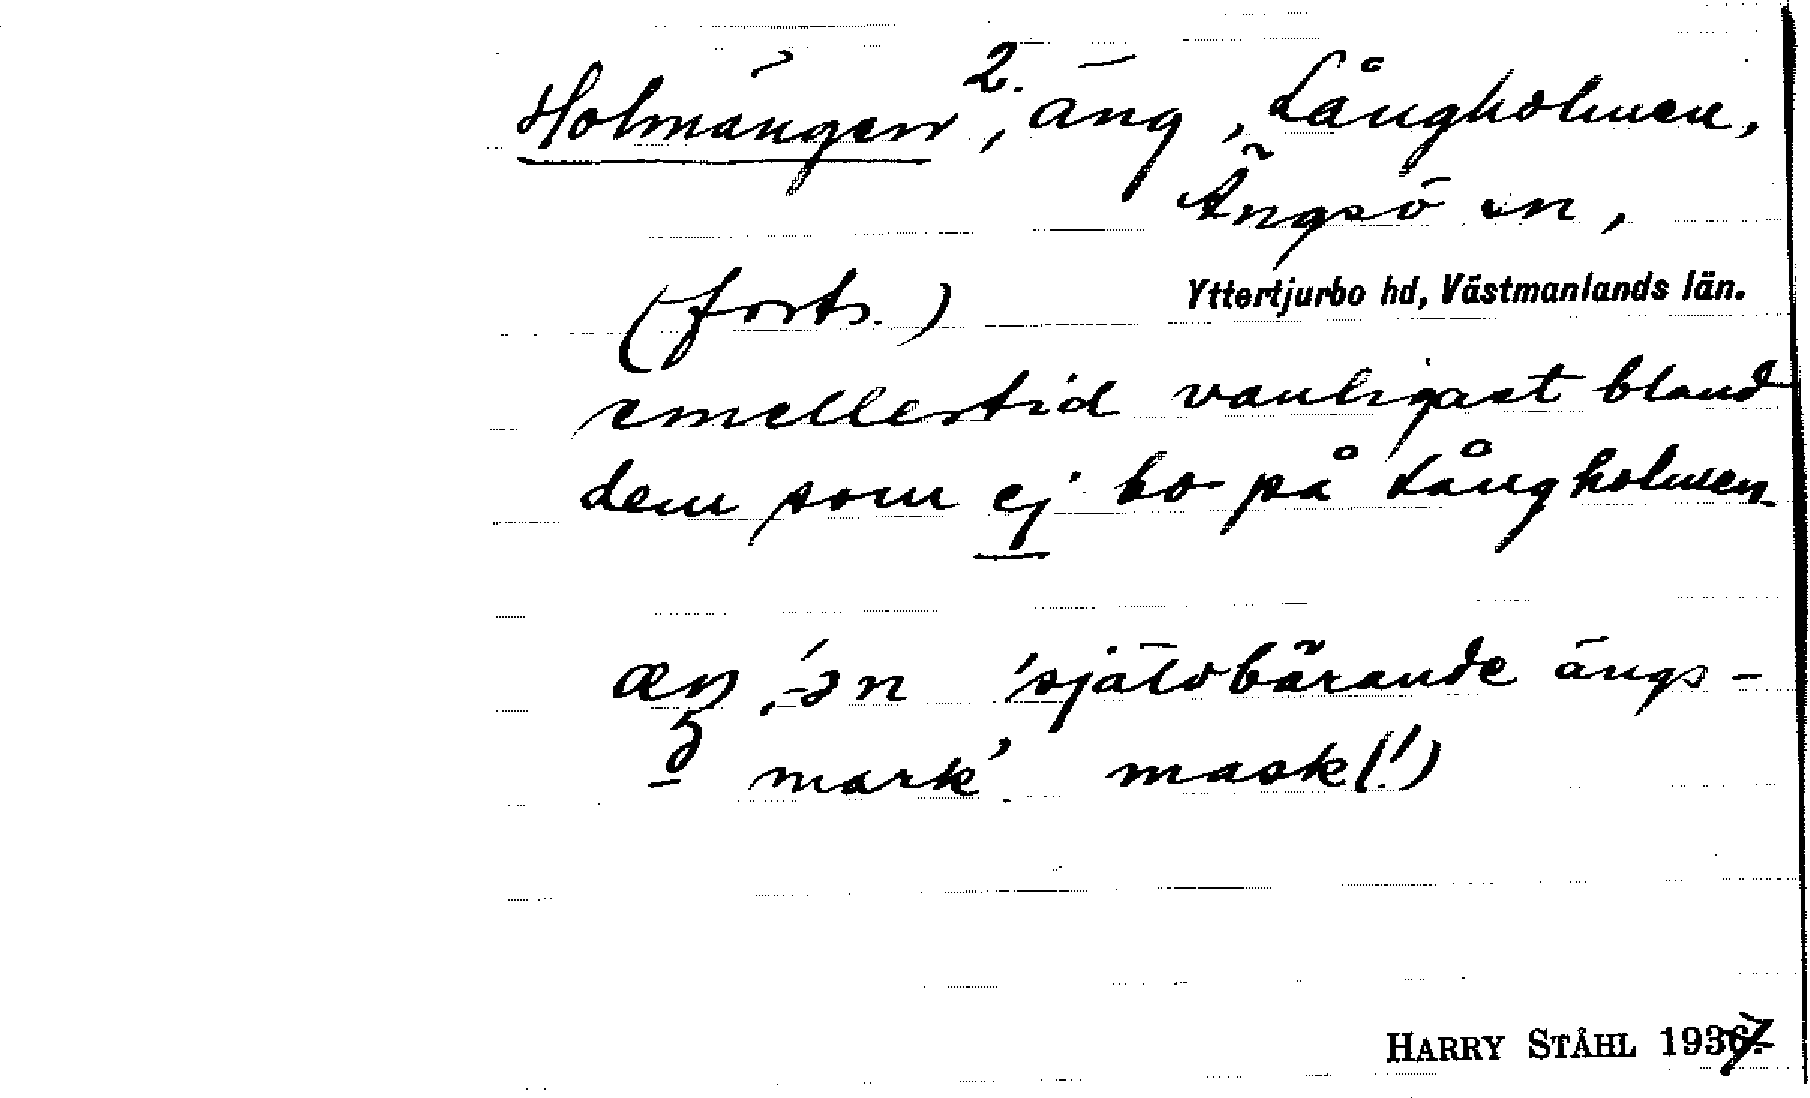 Holmängen 2., äng, Långholmen,
Ängsö sn,
Yttertjurbo hd, Västmanlands län.
(forts.)
emellertid vanligast bland
dem som ej bo på Långholmen
'självbärande ängs-
mark' mask(!)
HARRY STÅHL 1937